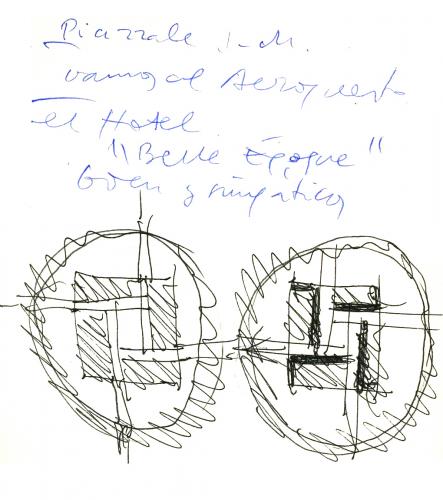 Piazzale
vamos al Aeropuerto
el Hotel
"Belle Époque"
y simpatico